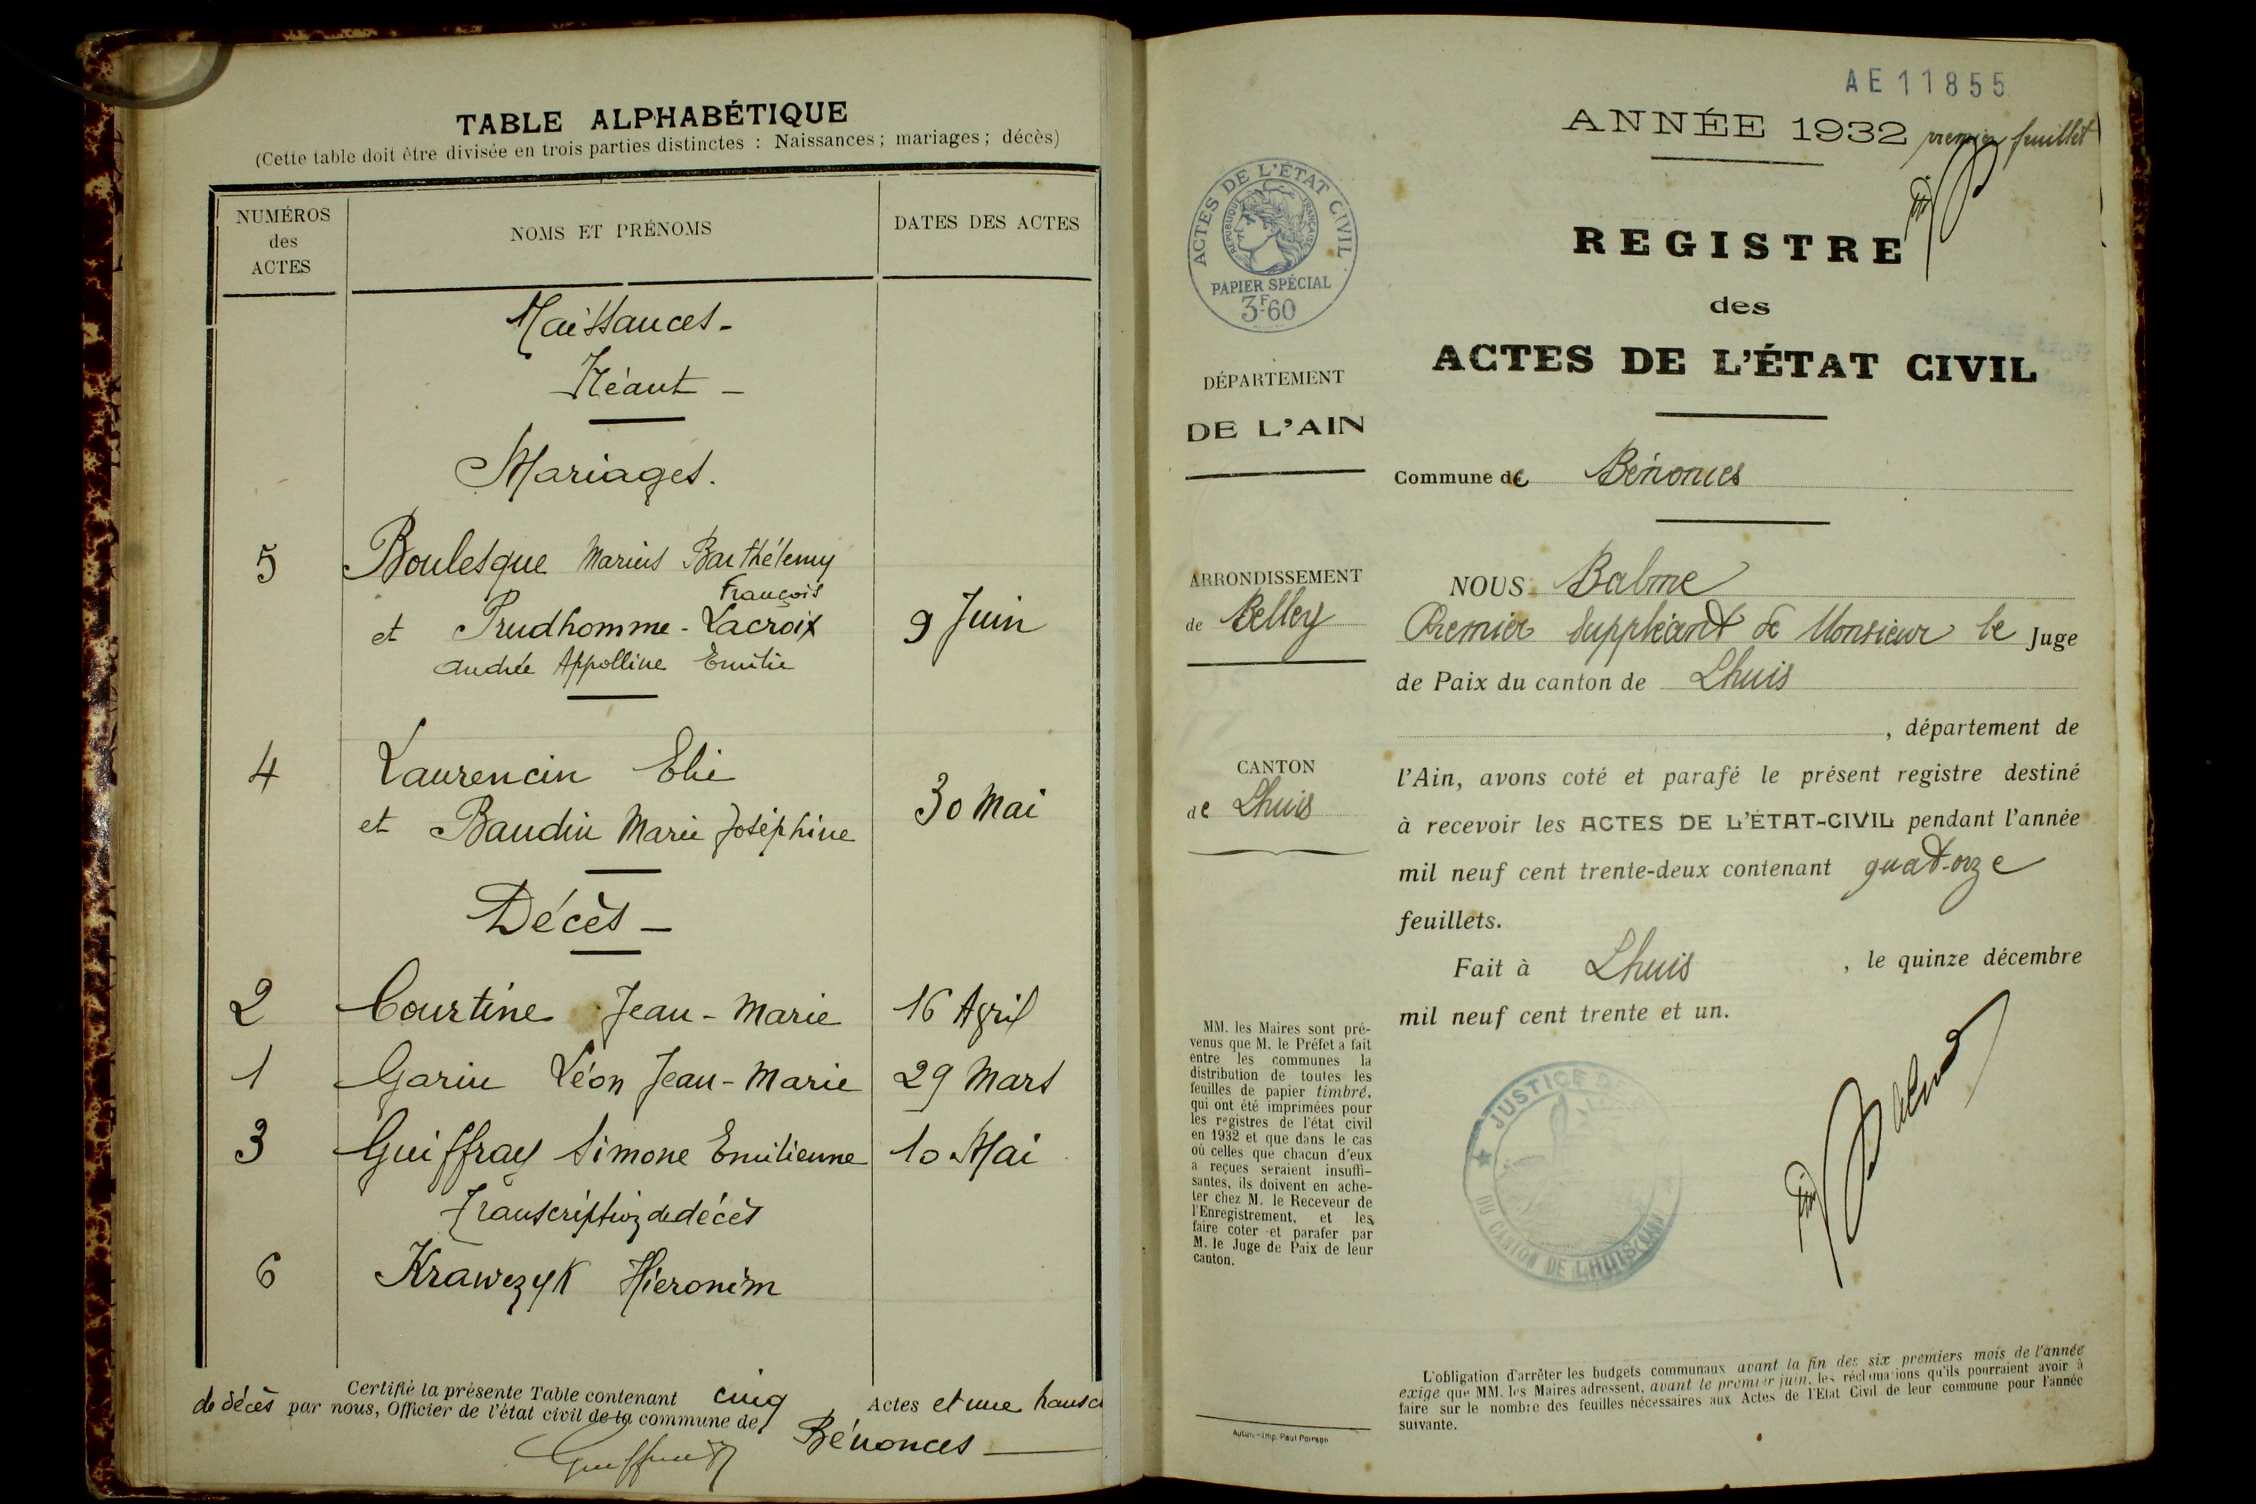 TABLE ALPHABÉTIQUE
(Cette table doit être divisée en trois parties distinctes : Naissances ; mariages ; décès)
NUMÉROS
des
ACTES
NOMS ET PRÉNOMS
DATES DES ACTES
Naissances -
Néant -
Mariages.
5 Boulesque Marius Barthélemy
François
et Prudhomme - Lacroix 9 Juin
Andrée Appolline Emilie
4 Laurencin Elie
et Baudin Marie Joséphine 30 Mai
Décès -
2 Courtine Jean-Marie 16 Avril
1 Garin Léon Jean-Marie 29 Mars
3 Guiffray Simone Emilienne 10 Mai
Transcription de décès
6 Krawezyk Hieronim
Certifié la présente Table contenant cinq Actes et une transc
de décès par nous, Officier de l'état civil de la commune de
Bénonces
AE 11855
ANNÉE 1932 premier feuillet
ACTES DE L'ÉTAT CIVIL
RÉPUBLIQUE FRANÇAISE
PAPIER SPÉCIAL
3F60
REGISTRE
des
ACTES DE L'ÉTAT CIVIL
DÉPARTEMENT
DE L'AIN
Commune de Bénonces
ARRONDISSEMENT
de Belley
CANTON
de Lhuis
NOUS Balme
Premier Suppléant de Monsieur le Juge
de Paix du canton de Lhuis
, département de
l'Ain, avons coté et parafé le présent registre destiné
à recevoir les ACTES DE L'ÉTAT-CIVIL pendant l'année
mil neuf cent trente-deux contenant quatorze
feuillets.
Fait à Lhuis , le quinze décembre
mil neuf cent trente et un.
MM. les Maires sont pré-
venus que M. le Préfet a fait
entre les communes la
distribution de toutes les
feuilles de papier timbré,
qui ont été imprimées pour
les registres de l'état civil
en 1932 et que dans le cas
où celles que chacun d'eux
a reçues seraient insuffi-
santes, ils doivent en ache-
ter chez M. le Receveur de
l'Enregistrement, et les
faire coter et parafer par
M. le Juge de Paix de leur
canton.
JUSTICE
DU CANTON DE LHUIS (AIN)
Balme
L'obligation d'arrêter les budgets communaux avant la fin des six premiers mois de l'année
exige que MM. les Maires adressent, avant le premier juin, les réclamations qu'ils pourraient avoir à
faire sur le nombre des feuilles nécessaires aux Actes de l'Etat Civil de leur commune pour l'année
suivante.
Autun. - Imp. Paul Poirson